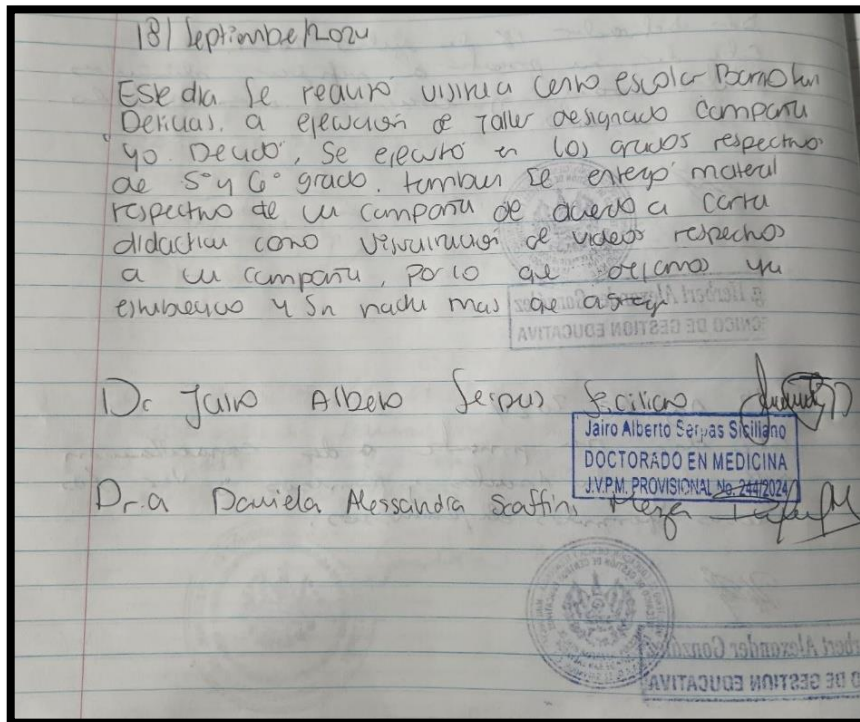 18/ Septiembre/2024
Este dia se realizó visita a centro escolar Barrio las
Delicias. a ejecución de Taller designado Campaña
yo Decido, Se ejecutó en los grados respectivos
de 5° y 6° grado. tambien se entregó material
respectivo de la campaña de acuerdo a carta
didactica como visualización de videos respectivos
a la campaña, por lo que dejamos ya
establecido y sin nada mas que agregar
Dr Jairo Alberto Serpas Siciliano
Jairo Alberto Serpas Siciliano
DOCTORADO EN MEDICINA
J.V.P.M. PROVISIONAL No. 244/2024
Dr.a Daniela Alessandra Scaffini Menza